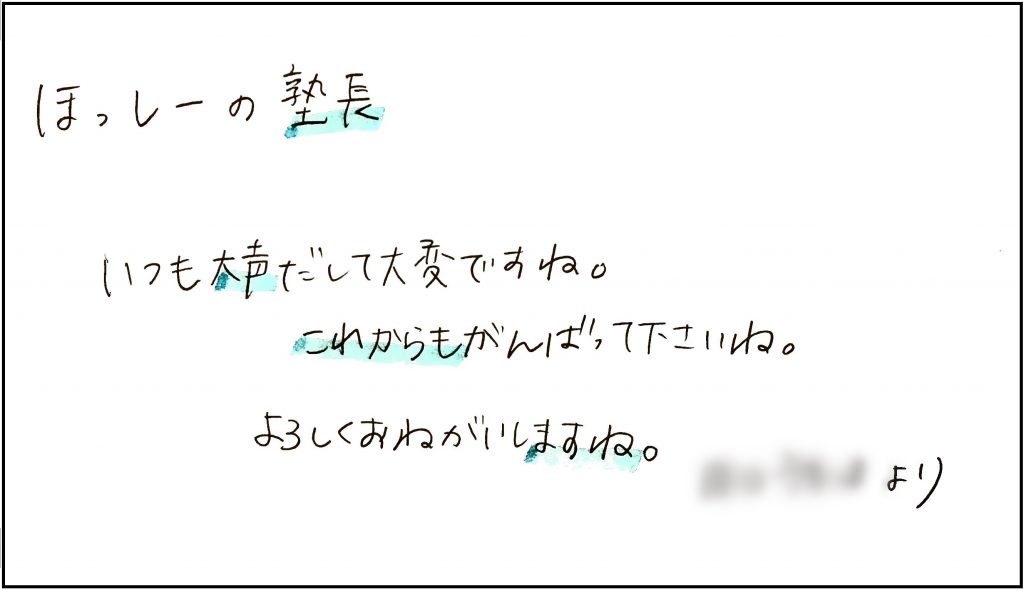 ほっしーの塾長
いつも大声だして大変ですね。
これからもがんばって下さいね。
よろしくおねがいしますね。
より